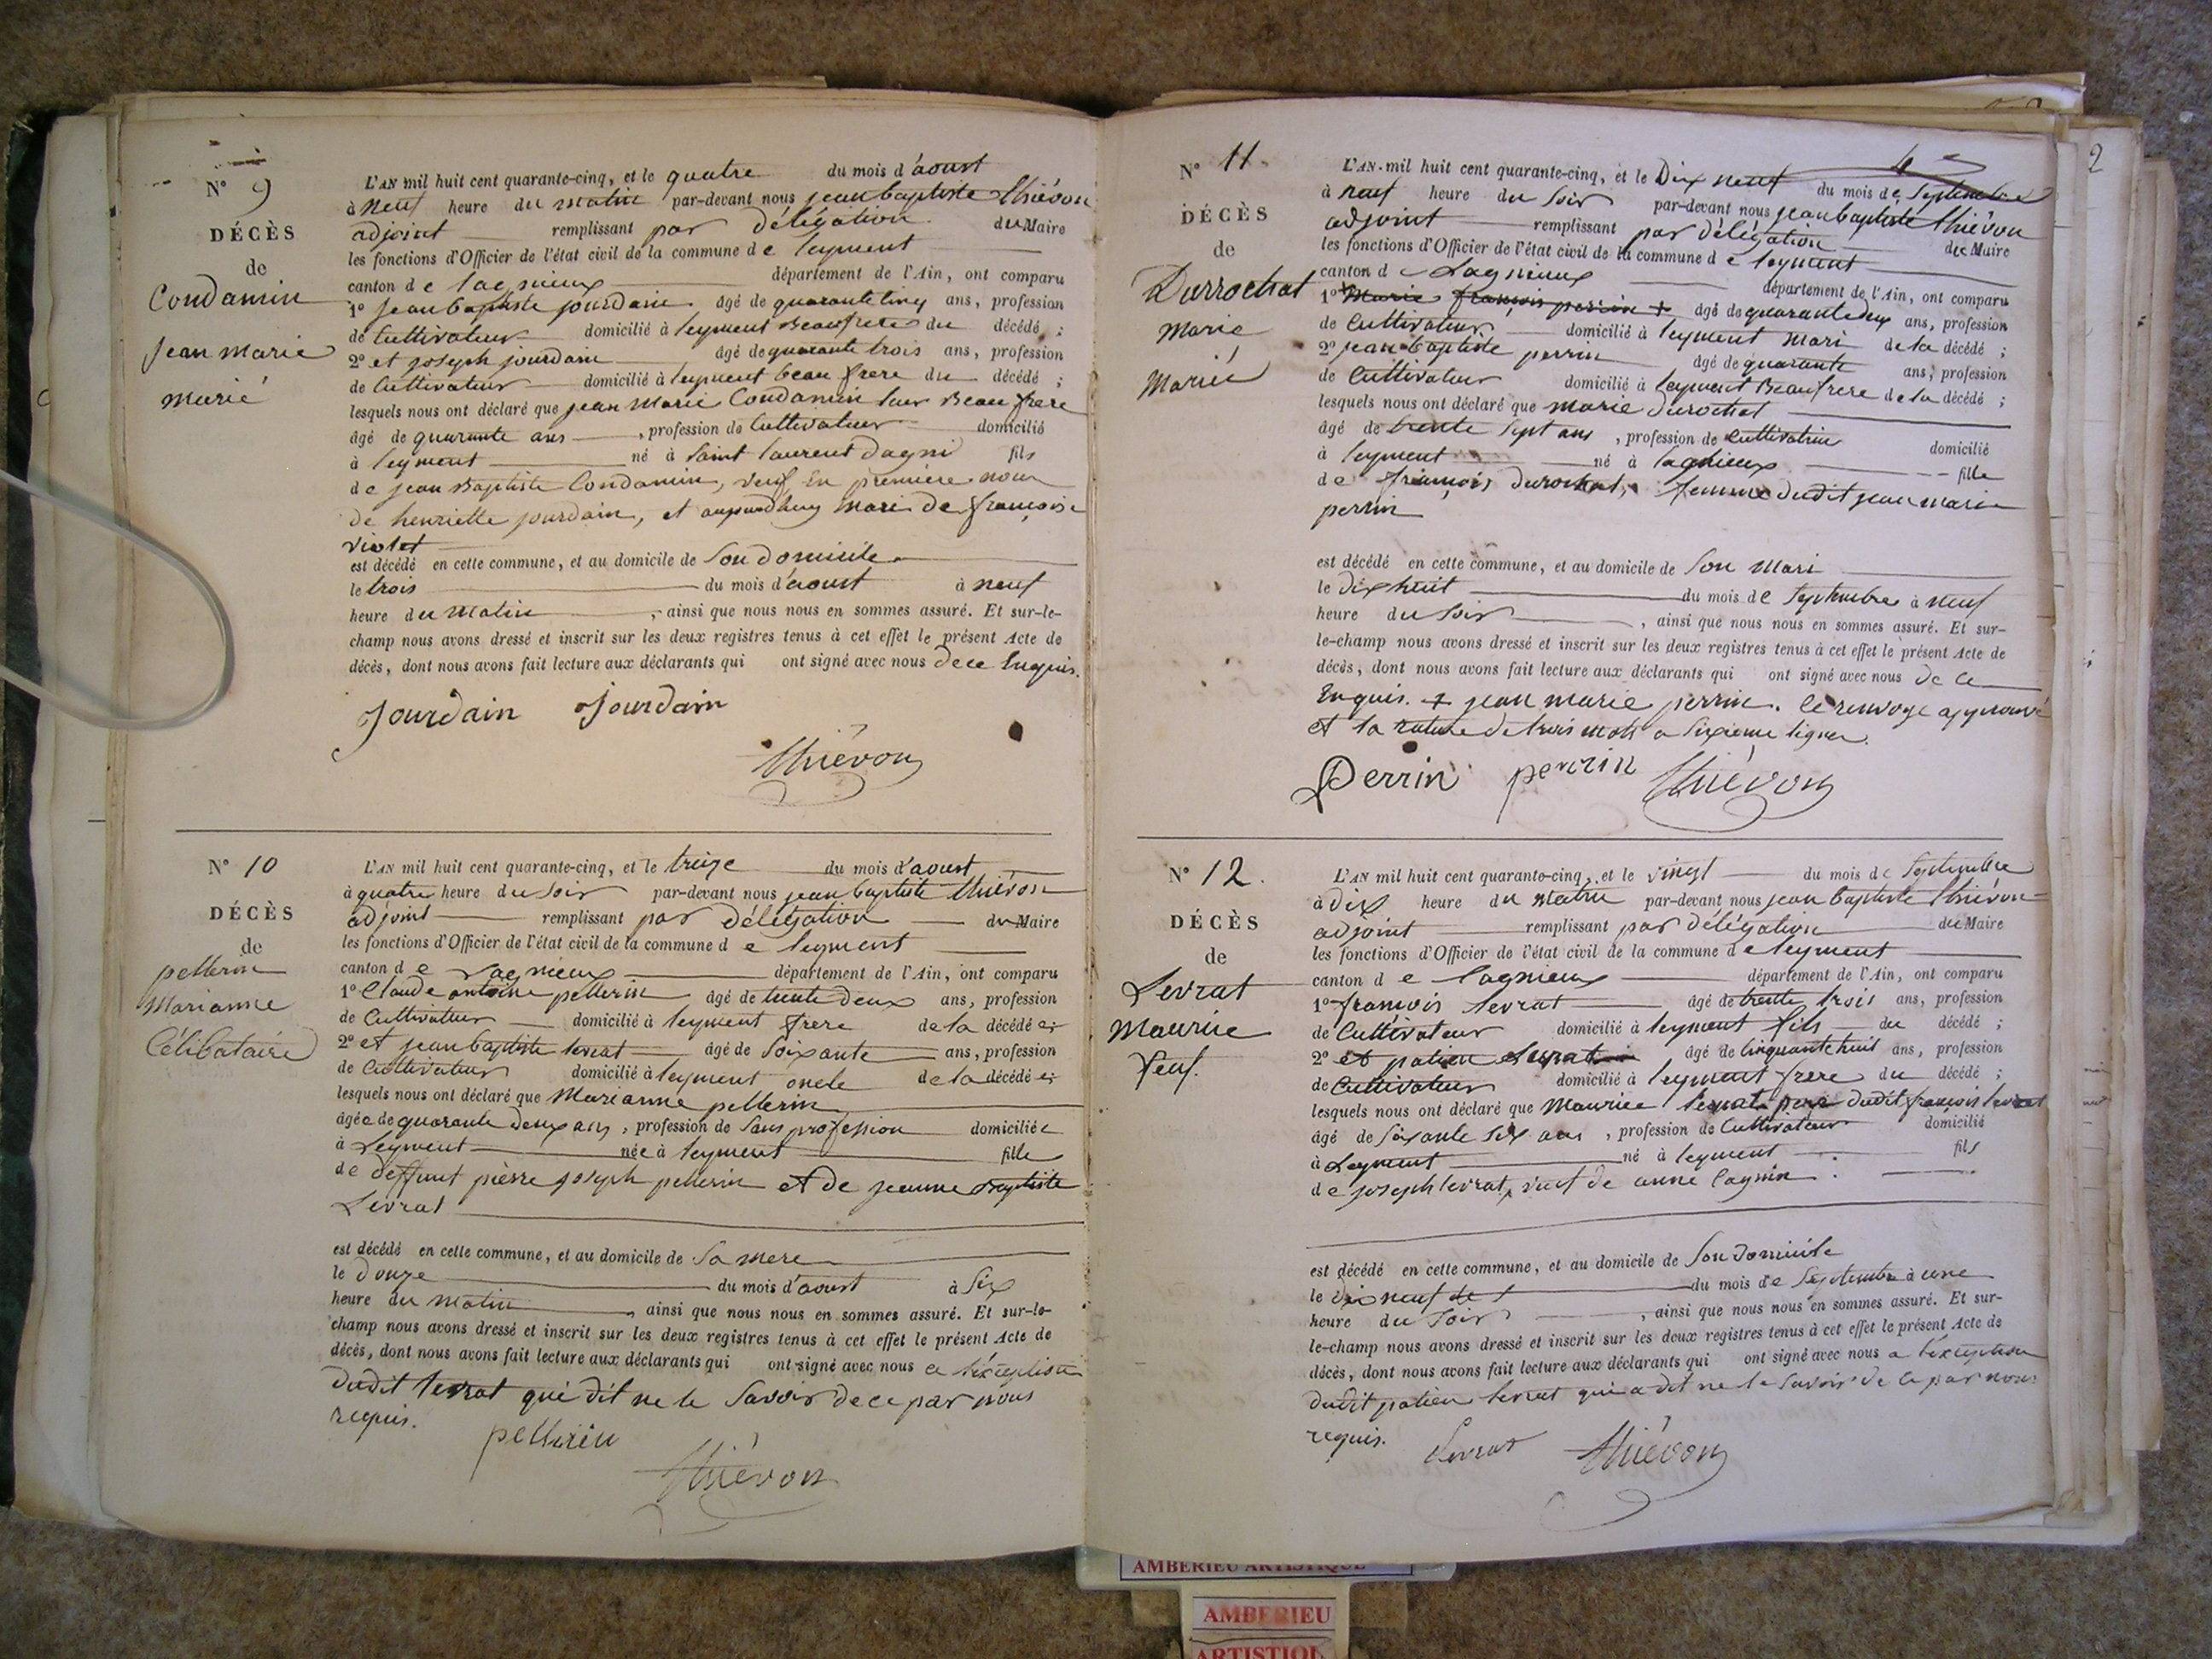 N° 9
DÉCÈS
de
Condamin
Jean Marie
Marié
L'AN mil huit cent quarante-cinq, et le quatre du mois d'aoust
à neuf heure du matin par-devant nous jean baptiste thiévon
adjoint remplissant par délégation du Maire
les fonctions d'Officier de l'état civil de la commune de leyment
canton de lagnieux département de l'Ain, ont comparu
1° jean baptiste jourdain âgé de quarante cinq ans, profession
de Cultivateur domicilié à leyment Beaufrere du décédé ;
2° et joseph jourdain âgé de quarante trois ans, profession
de Cultivateur domicilié à leyment beau frere du décédé ;
lesquels nous ont déclaré que jean Marie Condamin leur Beau frere
âgé de quarante ans, profession de Cultivateur domicilié
à leyment né à Saint laurent dagni fils
de jean Baptiste Condamin, veuf En première nom
de henriette jourdain, et aujourdhuy mari de françoise
violet
est décédé en cette commune, et au domicile de Son domicile
le trois du mois d'aoust à neuf
heure du matin, ainsi que nous nous en sommes assuré. Et sur-le-
champ nous avons dressé et inscrit sur les deux registres tenus à cet effet le présent Acte de
décès, dont nous avons fait lecture aux déclarants qui ont signé avec nous de ce Enquis.
Jourdain Jourdain
thiévon
N° 10
DÉCÈS
de
pellerin
Marianne
Célibataire
L'AN mil huit cent quarante-cinq, et le treize du mois d'aoust
à quatre heure du soir par-devant nous jean baptiste thiévon
adjoint remplissant par délégation du Maire
les fonctions d'Officier de l'état civil de la commune de leyment
canton de Lagnieux département de l'Ain, ont comparu
1° Claude antoine pellerin âgé de trente deux ans, profession
de Cultivateur domicilié à leyment frere de la décédé
2° et jean baptiste levrat âgé de Soixante ans, profession
de Cultivateur domicilié à leyment oncle de la décédé
lesquels nous ont déclaré que Marianne pellerin
âgée de quarante deux ans, profession de Sans profession domiciliée
à Leyment née à leyment fille
de deffunt pièrre joseph pellerin et de jeanne Baptiste
Levrat
est décédé en cette commune, et au domicile de Sa mere
le douze du mois d'aoust à Six
heure du matin, ainsi que nous nous en sommes assuré. Et sur-le-
champ nous avons dressé et inscrit sur les deux registres tenus à cet effet le présent Acte de
décès, dont nous avons fait lecture aux déclarants qui ont signé avec nous a l'éxception
dudit levrat qui dit ne le Savoir de ce par nous
requis.
pellerin
thiévon
N° 11.
DÉCÈS
de
Durrochat
Marie
Mariée
L'AN mil huit cent quarante-cinq, et le Dix neuf du mois de Septembre
à neuf heure du Soir par-devant nous jean baptiste thiévon
adjoint remplissant par délégation du Maire
les fonctions d'Officier de l'état civil de la commune de leyment
canton de Lagnieux département de l'Ain, ont comparu
1° Marie françois perrin + âgé de quarante deux ans, profession
de Cultivateur domicilié à leyment Mari de la décédé ;
2° jean baptiste perrin âgé de quarante ans, profession
de Cultivateur domicilié à leyment Beaufrere de la décédé ;
lesquels nous ont déclaré que Marie durochat
âgé de trente Sept ans, profession de Cultivatrice domicilié
à leyment né à lagnieux fille
de françois durochat, femme dudit jean marie
perrin
est décédé en cette commune, et au domicile de Son Mari
le Dix huit du mois de Septembre à neuf
heure du Soir, ainsi que nous nous en sommes assuré. Et sur-
le-champ nous avons dressé et inscrit sur les deux registres tenus à cet effet le présent Acte de
décès, dont nous avons fait lecture aux déclarants qui ont signé avec nous de ce
Enquis. + jean marie perrin. le renvoye approuvé
et la rature de trois mots a Sixieme ligne.
Perrin perrin thiévon
N° 12.
DÉCÈS
de
Levrat
Maurice
Veuf.
L'AN mil huit cent quarante-cinq, et le vingt du mois de Septembre
à dix heure du Matin par-devant nous jean baptiste thiévon
adjoint remplissant par délégation du Maire
les fonctions d'Officier de l'état civil de la commune de leyment
canton de lagnieux département de l'Ain, ont comparu
1° françois levrat âgé de trente trois ans, profession
de Cultivateur domicilié à leyment fils du décédé ;
2° et patien Levrat âgé de Cinquante huit ans, profession
de Cultivateur domicilié à leyment frere du décédé ;
lesquels nous ont déclaré que Maurice levrat pere dudit françois levrat
âgé de Soixante Six ans, profession de Cultivateur domicilié
à Leyment né à leyment fils
de joseph levrat, veuf de anne
est décédé en cette commune, et au domicile de Son domicile
le dix neuf de du mois de Septembre à une
heure du Soir, ainsi que nous nous en sommes assuré. Et sur-
le-champ nous avons dressé et inscrit sur les deux registres tenus à cet effet le présent Acte de
décès, dont nous avons fait lecture aux déclarants qui ont signé avec nous a l'exception
dudit patien levrat qui a dit ne le Savoir de ce par nous
requis.
Levrat thiévon
2
AMBERIEU ARTISTIQUE
AMBERIEU